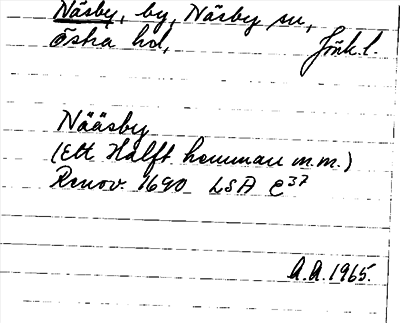 Näsby, by, Näsby sn,
Östra hd, Jönk.l.
Nääsby
(Ett Halft hemman m.m.)
Renov. 1690 LSA E37
A.A. 1965.